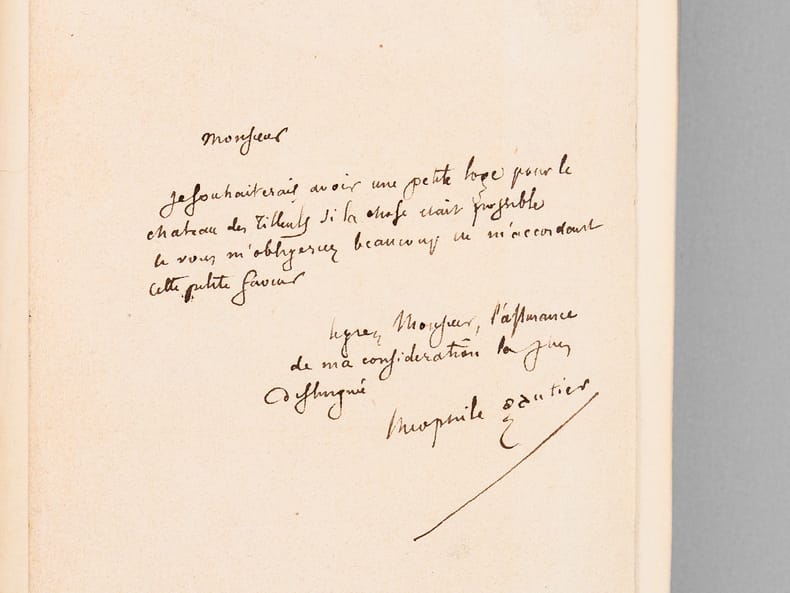 Monsieur
je souhaiterais avoir une petite loge pour le
chateau des Tilleuls si la chose était possible
et vous m'obligeriez beaucoup en m'accordant
cette petite faveur
agreez Monsieur, l'assurance
de ma consideration la plus
distinguée
theophile gautier